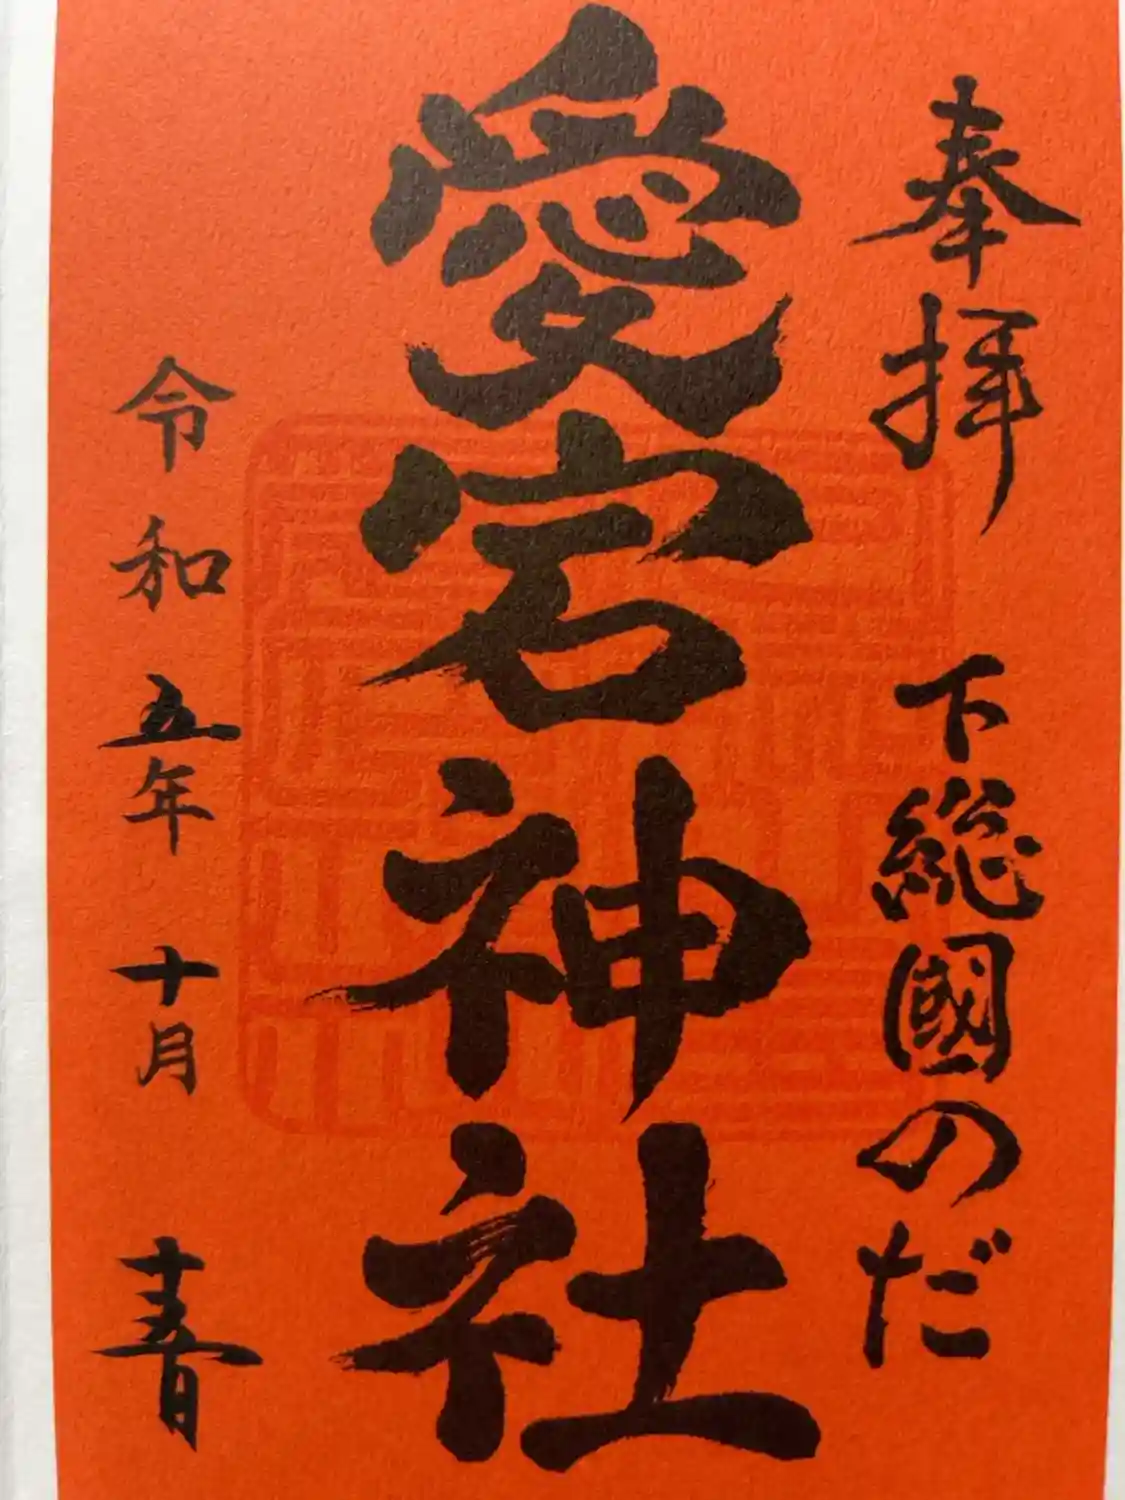 奉拝 下総國のだ
愛宕神社
令和五年十月十五日